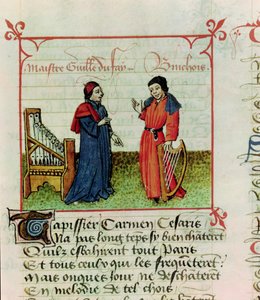 Maistre Guille du fay . Binchois .
Tapissier Carmen Cesaris
Na pas long tēps sy bien chāterēt
Quilz esbahirent tout Paris
Et tous ceulx qui les frequēterēt
Mais onques Iour ne deschāterēt
En melodie de tel chois